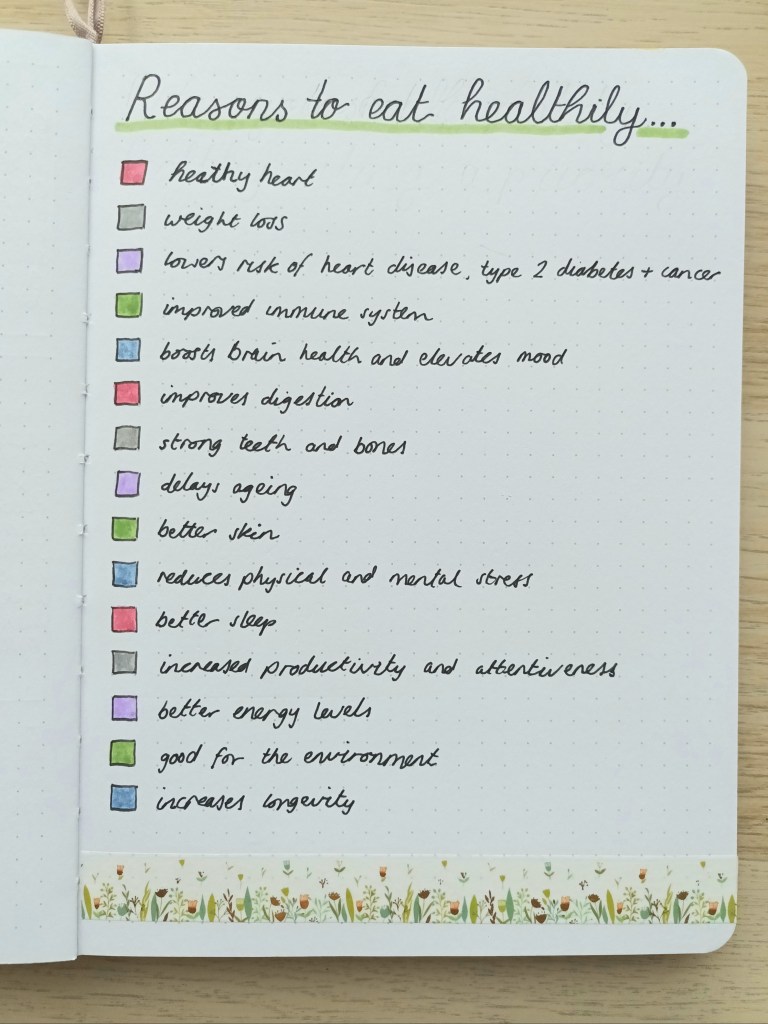 Reasons to eat healthily...
healthy heart
weight loss
lowers risk of heart disease, type 2 diabetes + cancer
improved immune system
boosts brain health and elevates mood
improves digestion
strong teeth and bones
delays ageing
better skin
reduces physical and mental stress
better sleep
increased productivity and attentiveness
better energy levels
good for the environment
increases longevity